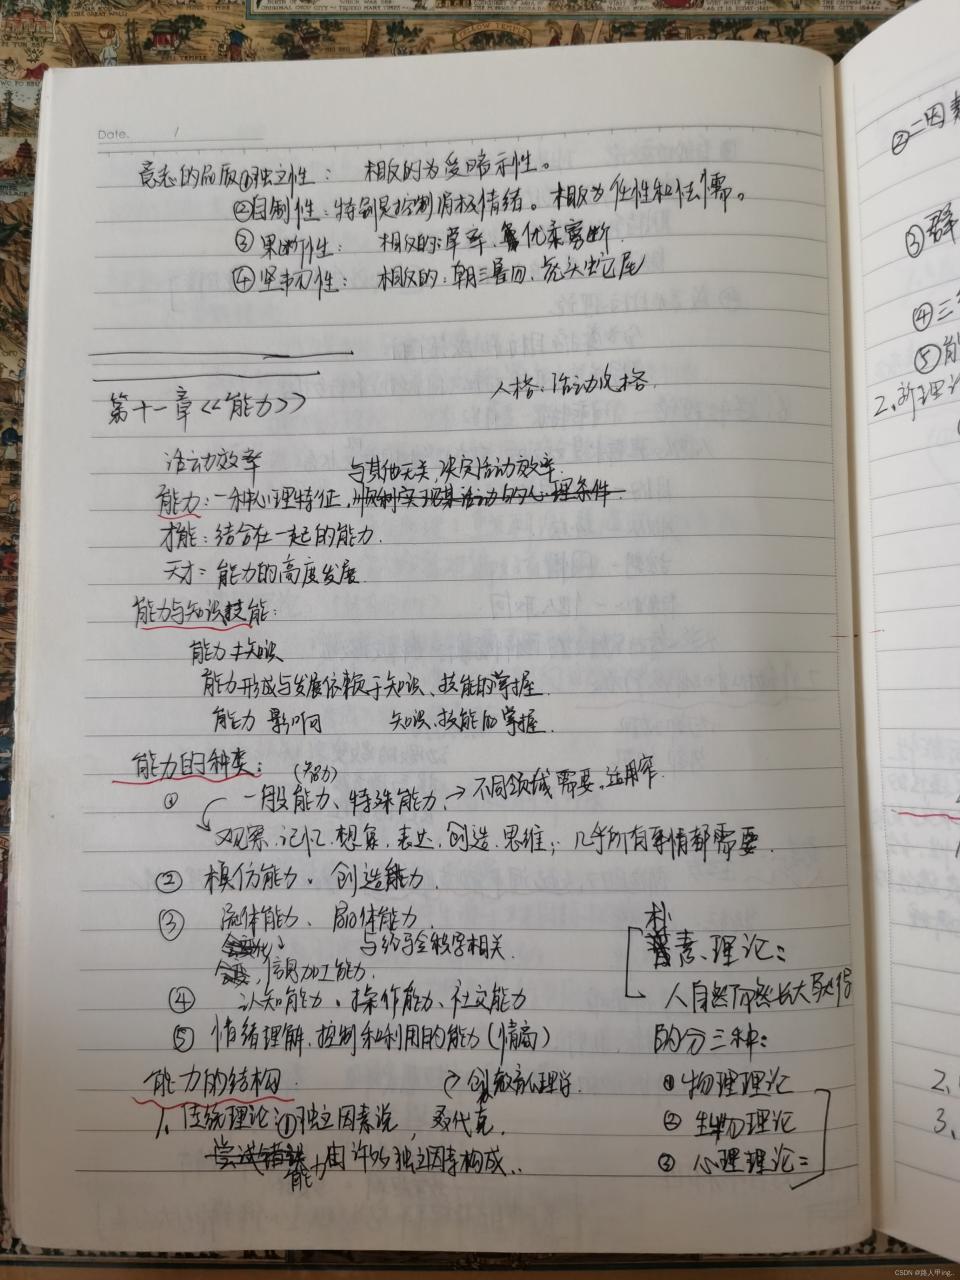 Date. /
意志的品质①独立性： 相反的为受暗示性。
②自制性：特别是控制消极情绪。相反为任性和怯懦。
③ 果断性： 相反的：草率、优柔寡断.
④ 坚韧性： 相反的：朝三暮四、虎头蛇尾
人格：活动风格.
第十一章<<能力>>
活动效率 与其他无关,决定活动效率.
能力：一种心理特征，顺利实现某活动的心理条件.
才能：结合在一起的能力.
天才：能力的高度发展.
能力与知识技能：
能力≠知识
能力形成与发展依赖于知识、技能的掌握.
能力 影响 知识、技能的掌握.
能力的种类：(智力)
① 一般能力、特殊能力、→不同领域需要.适用窄.
观察.记忆.想象.表达.创造.思维；几乎所有事情都需要.
② 模仿能力、创造能力.
③ 流体能力、晶体能力.
与后
信息加工能力.
④ 认知能力、操作能力、社交能力
⑤ 情绪理解、控制和利用的能力(情商)
朴
素、理论：
人自然而然长大
的分三种：
① 物理理论
② 生物理论
③ 心理理论：
能力的结构.
→创教育心理学.
1、传统理论：①独立因素说，桑代克.
能力由许多独立因素构成..
②二因素
③群
④三
⑤
2、新理论
2.
3、
CSDN @路人甲ing..